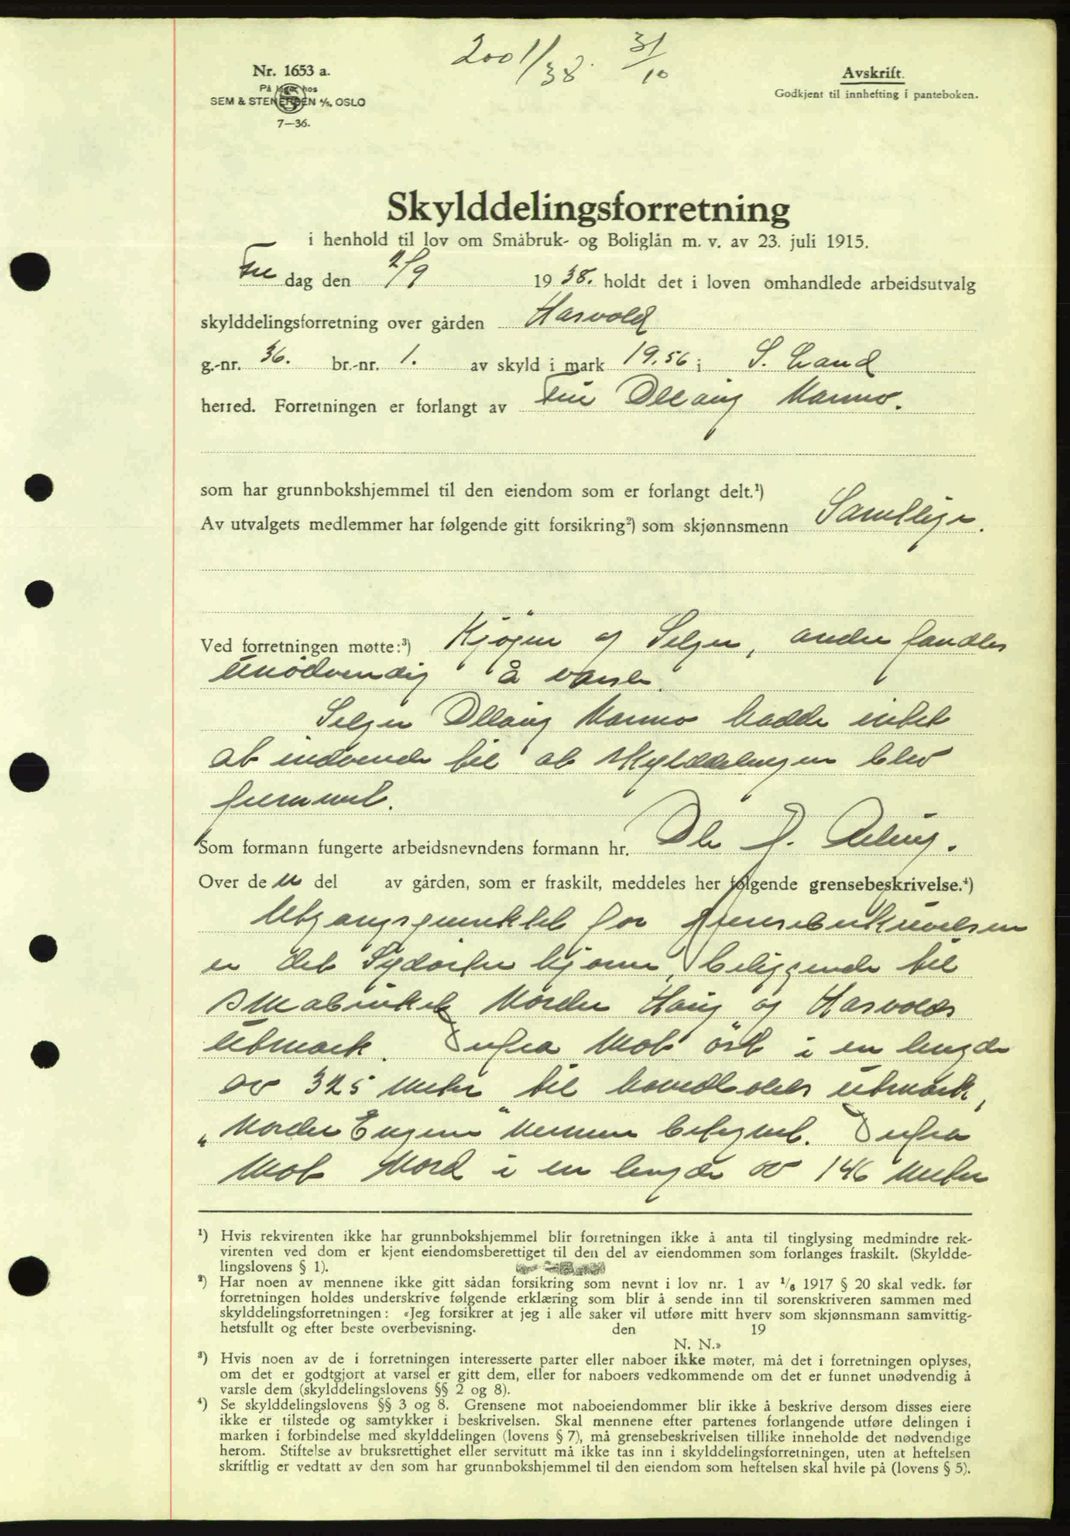 2001/38. 31/10
Nr. 1653 a.
På lager hos
SEM & STENERSEN A/S, OSLO
7—36.
Avskrift.
Godkjent til innhefting i panteboken.
Skylddelingsforretning
i henhold til lov om Småbruk- og Boliglån m. v. av 23. juli 1915.
Fre dag den 2/9 1938. holdt det i loven omhandlede arbeidsutvalg
skylddelingsforretning over gården Hasvold
g.-nr. 36. br.-nr. 1. av skyld i mark 19.56 i S. Land
herred. Forretningen er forlangt av Fru
som har grunnbokshjemmel til den eiendom som er forlangt delt.¹)
Av utvalgets medlemmer har følgende gitt forsikring²) som skjønnsmenn Samtlige.
Ved forretningen møtte:³) Kjøper og Selger, andre fandtes
unødvendig å varsle.
Selger hadde intet
at indvende til at skylddelingen blev
fremmet.
Som formann fungerte arbeidsnevndens formann hr.
Over den del av gården, som er fraskilt, meddeles her følgende grensebeskrivelse.⁴)
Utgangspunktet for grensebeskrivelsen
er det Sydöstre hjørne, beliggende til
småbruket Nordre Haug og Hasvolds
utmark. Derfra mot öst i en lengde
av 325 meter til hovedbolets utmark,
"Nordre Engene" benevnt. Derfra
mot Nord i en lengde av 146 meter
¹) Hvis rekvirenten ikke har grunnbokshjemmel blir forretningen ikke å anta til tinglysing medmindre rek-
virenten ved dom er kjent eiendomsberettiget til den del av eiendommen som forlanges fraskilt. (Skyldde-
lingslovens § 1).
²) Har noen av mennene ikke gitt sådan forsikring som nevnt i lov nr. 1 av 1/6 1917 § 20 skal vedk. før
forretningen holdes underskrive følgende erklæring som blir å sende inn til sorenskriveren sammen med
skylddelingsforretningen: «Jeg forsikrer at jeg i alle saker vil utføre mitt hverv som skjønnsmann samvittig-
hetsfullt og efter beste overbevisning. den 19
N. N.»
³) Hvis noen av de i forretningen interesserte parter eller naboer ikke møter, må det i forretningen oplyses,
om det er godtgjort at varsel er gitt dem, eller for naboers vedkommende om det er funnet unødvendig å
varsle dem (skylddelingslovens §§ 2 og 8).
⁴) Se skylddelingslovens §§ 3 og 8. Grensene mot naboeiendommer blir ikke å beskrive dersom disses eiere
ikke er tilstede og samtykker i beskrivelsen. Skal mennene efter partenes forlangende utføre delingen i
marken i forbindelse med skylddelingen (lovens § 7), må grensebeskrivelsen tillike inneholde det nødvendige
herom. Stiftelse av bruksrettighet eller servitutt må ikke tas inn i skylddelingsforretningen, uten at heftelsen
skriftlig er vedtatt av den som har grunnbokshjemmel til den eiendom som heftelsen skal hvile på (lovens § 5).